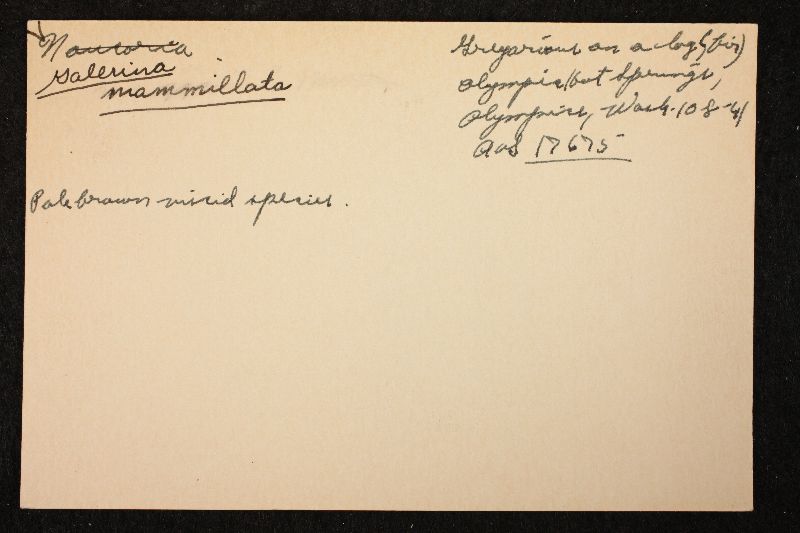 Naucoria
Galerina
mammillata
Gregarious on a log (fir)
Olympic Hot Springs,
Olympics, Wash. 10-8-41
AHS 17675
Pale brown viscid species.